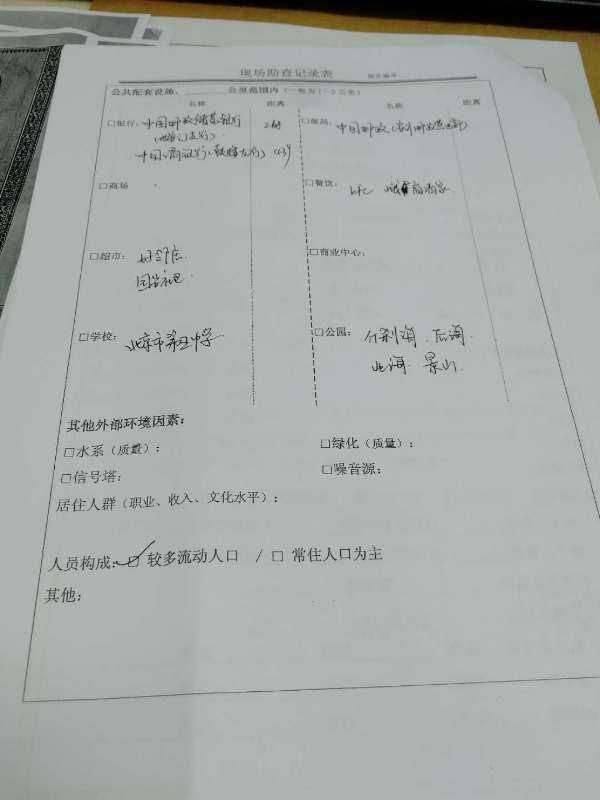 现场勘查记录表
报告编号
公共配套设施：______公里范围内（一般为1-2公里）
名称 距离 名称 距离
□银行：中国邮政储蓄银行
□邮局：中国邮政
中国工商银行 439
□商场
□餐饮：KFC
□超市：好邻居
□商业中心：
□学校：北京市第五中学
□公园：什刹海、后海
北海 景山
其他外部环境因素：
□水系（质量）：
□绿化（质量）：
□信号塔：
□噪音源：
居住人群（职业、收入、文化水平）：
人员构成：□ 较多流动人口 / □ 常住人口为主
其他：